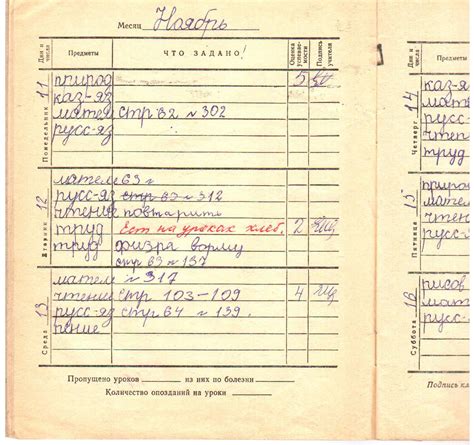 Месяц Ноябрь
Дни и числа Предметы ЧТО ЗАДАНО! Оценка успеваемости Подпись учителя
Понедельник 11
природ 5
каз-яз
матем стр 62 № 302
русс-яз
Вторник 12
матем 63 г
русс-яз стр 63 № 312
чтение повтарить
труд Ест на уроках хлеб. 2
труд физра форму
стр 63 № 137
Среда 13
матем № 317
чтение стр 103-109 4
русс-яз стр 64 № 139.
пение
Пропущено уроков из них по болезни
Количество опозданий на уроки
Дни и числа Предметы
Четверг 14
каз-я
мате
русс-
чтен
труд
Пятница 15
природ
мате
чтен
русс-
Суббота 16
рисов
мат
русс
Подпись кл